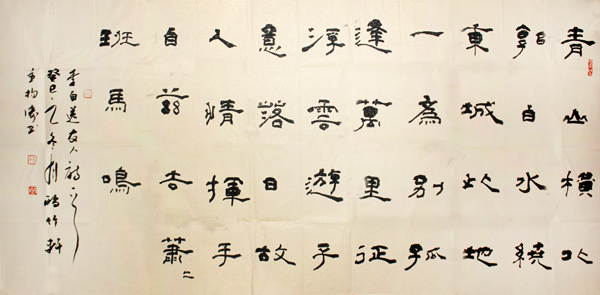 青山橫北
郭白水繞
東城此地
一為別孤
蓬萬里征
浮雲遊子
意落日故
人情揮手
自茲去蕭〻
班馬鳴
李白送友人詩一首
癸巳之冬竹軒